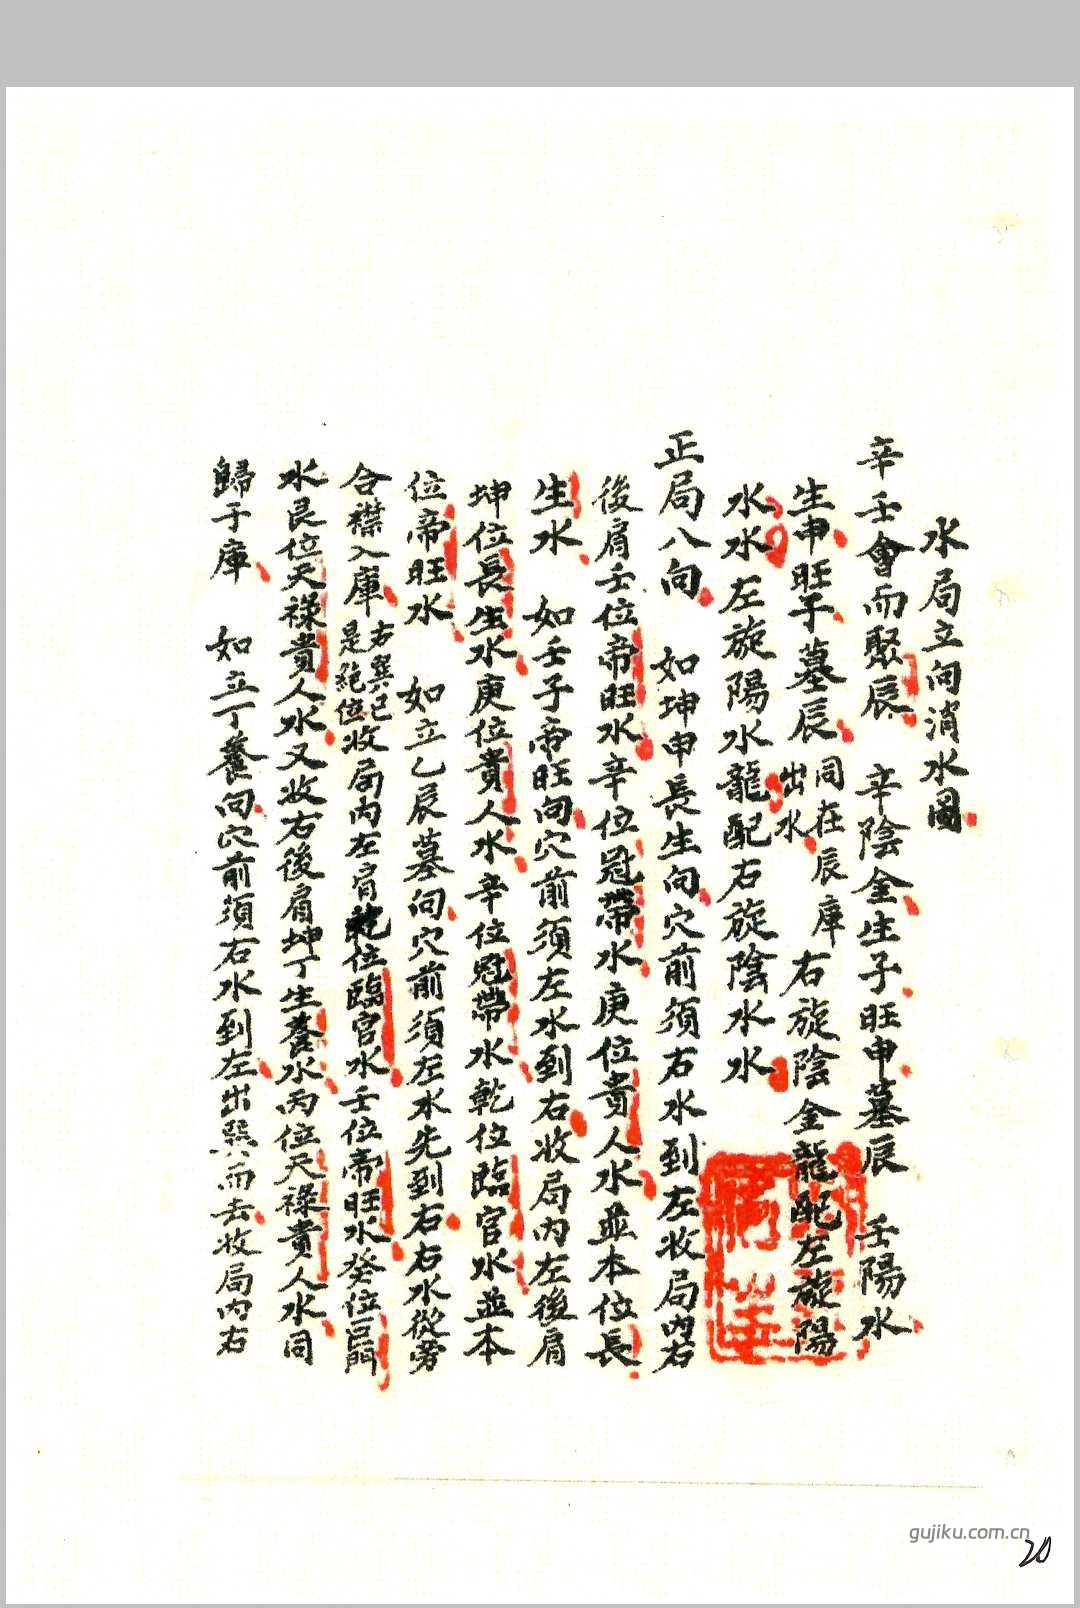 水局立向消水圖
辛壬會而聚辰　辛陰金生子旺申墓辰　壬陽水
生申旺子墓辰同在辰庫出水右旋陰金龍配左旋陽
水水左旋陽水龍配右旋陰水水
正局八向　如坤申長生向穴前須右水到左收局內右
後肩壬位帝旺水辛位冠帶水庚位貴人水並本位長
生水　如壬子帝旺向穴前須左水到右收局內左後肩
坤位長生水庚位貴人水辛位冠帶水乾位臨官水並本
位帝旺水　如立乙辰墓向穴前須左水先到右右水從旁
合襟入庫右巽巳是絕位收局內左肩乾位臨官水壬位帝旺水癸位巨門
水艮位天祿貴人水又收右後肩坤丁生養水丙位天祿貴人水同
歸于庫　如立丁養向穴前須右水到左出巽而去收局內右
gujiku.com.cn
20